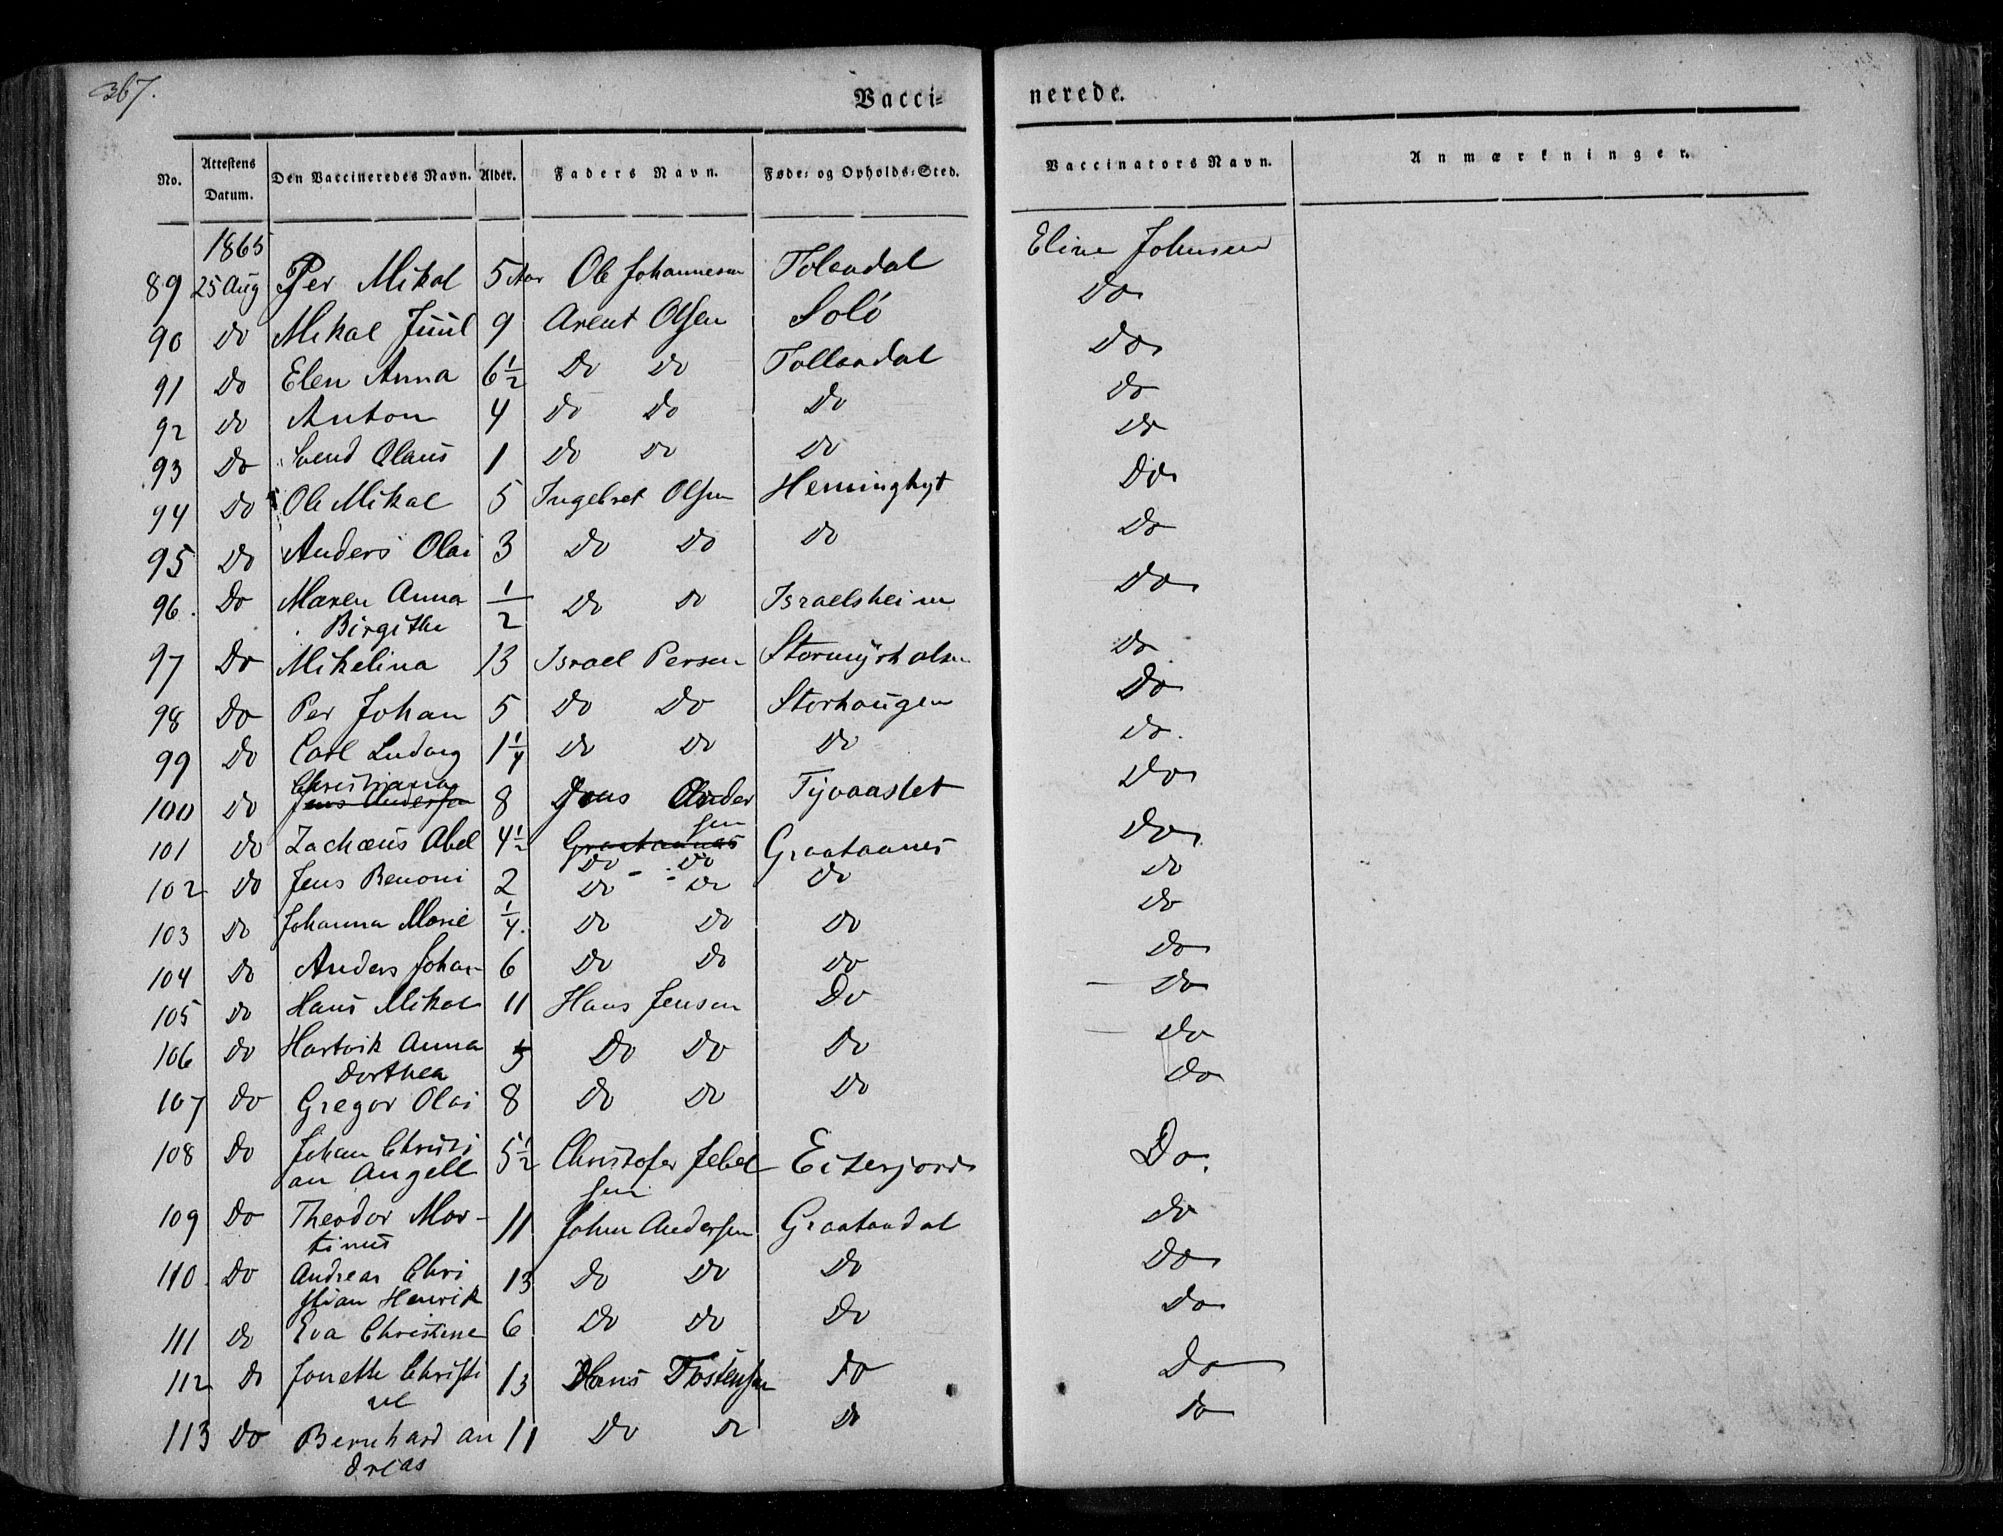 367.
Vacci= nerede.
No. Attestens Datum. Den Vaccineredes Navn. Alder. Faders Navn. Føde= og Opholds=Sted. Vaccinators Navn. Anmærkninger.
1865
89 25 Aug Per Mikal 5 Aar Ole Johannesen Tolaadal Eline Johnsen
90 Do Mikal Juul 9 Arent Olsen Solö Do
91 Do Elen Anna 6½ Do Do Tollaadal Do
92 Do Anton 4 Do Do Do Do
93 Do Svend Olaus 1 Do Do Do Do
94 Do Ole Mikal 5 Ingebret Olsen Heminghyt Do
95 Do Anders Olai 3 Do Do Do Do
96. Do Maren Anna ½ Do Do Israelsheim Do
Birgithe
97 Do Mikelina 13 Israel Persen Stormyrholsen Do
98 Do Per Johan 5 Do Do Storhaugen Do
99 Do Carl Ludvig 1¼ Do Do Do Do.
Christiana
100 Do Jens Andersen 8 Jens Ander Tyvaaslet Do
sen
101 Do Zachæus Abel 4½ Graataanes Graataanes Do
Do - Do
102 Do Jens Benoni 2 Do Do Do Do
103 Do Johanna Marie ¼. Do Do Do Do
104 Do Anders Johan 6 Do Do Do Do
105 Do Hans Mikal 11 Hans Jensen Do Do
106 Do Hartvik Anna 5 Do Do Do Do
Dorthea
107 Do Gregor Olai 8 Do Do Do Do
108 Do Johan Christi 5½ Christofer Jebel Eiterjord Do.
an Angell sen
109 Do Theodor Mar- 11 John Andersen Graataadal Do
tinus
110. Do Andreas Chri 13 Do Do Do Do
stian Henrik
111 Do Eva Christine 6 Do Do Do Do
112 Do Jonette Christi 13 Hans Tostensen Do Do
ne
113 Do Bernhard An 11 Do Do Do Do
dreas